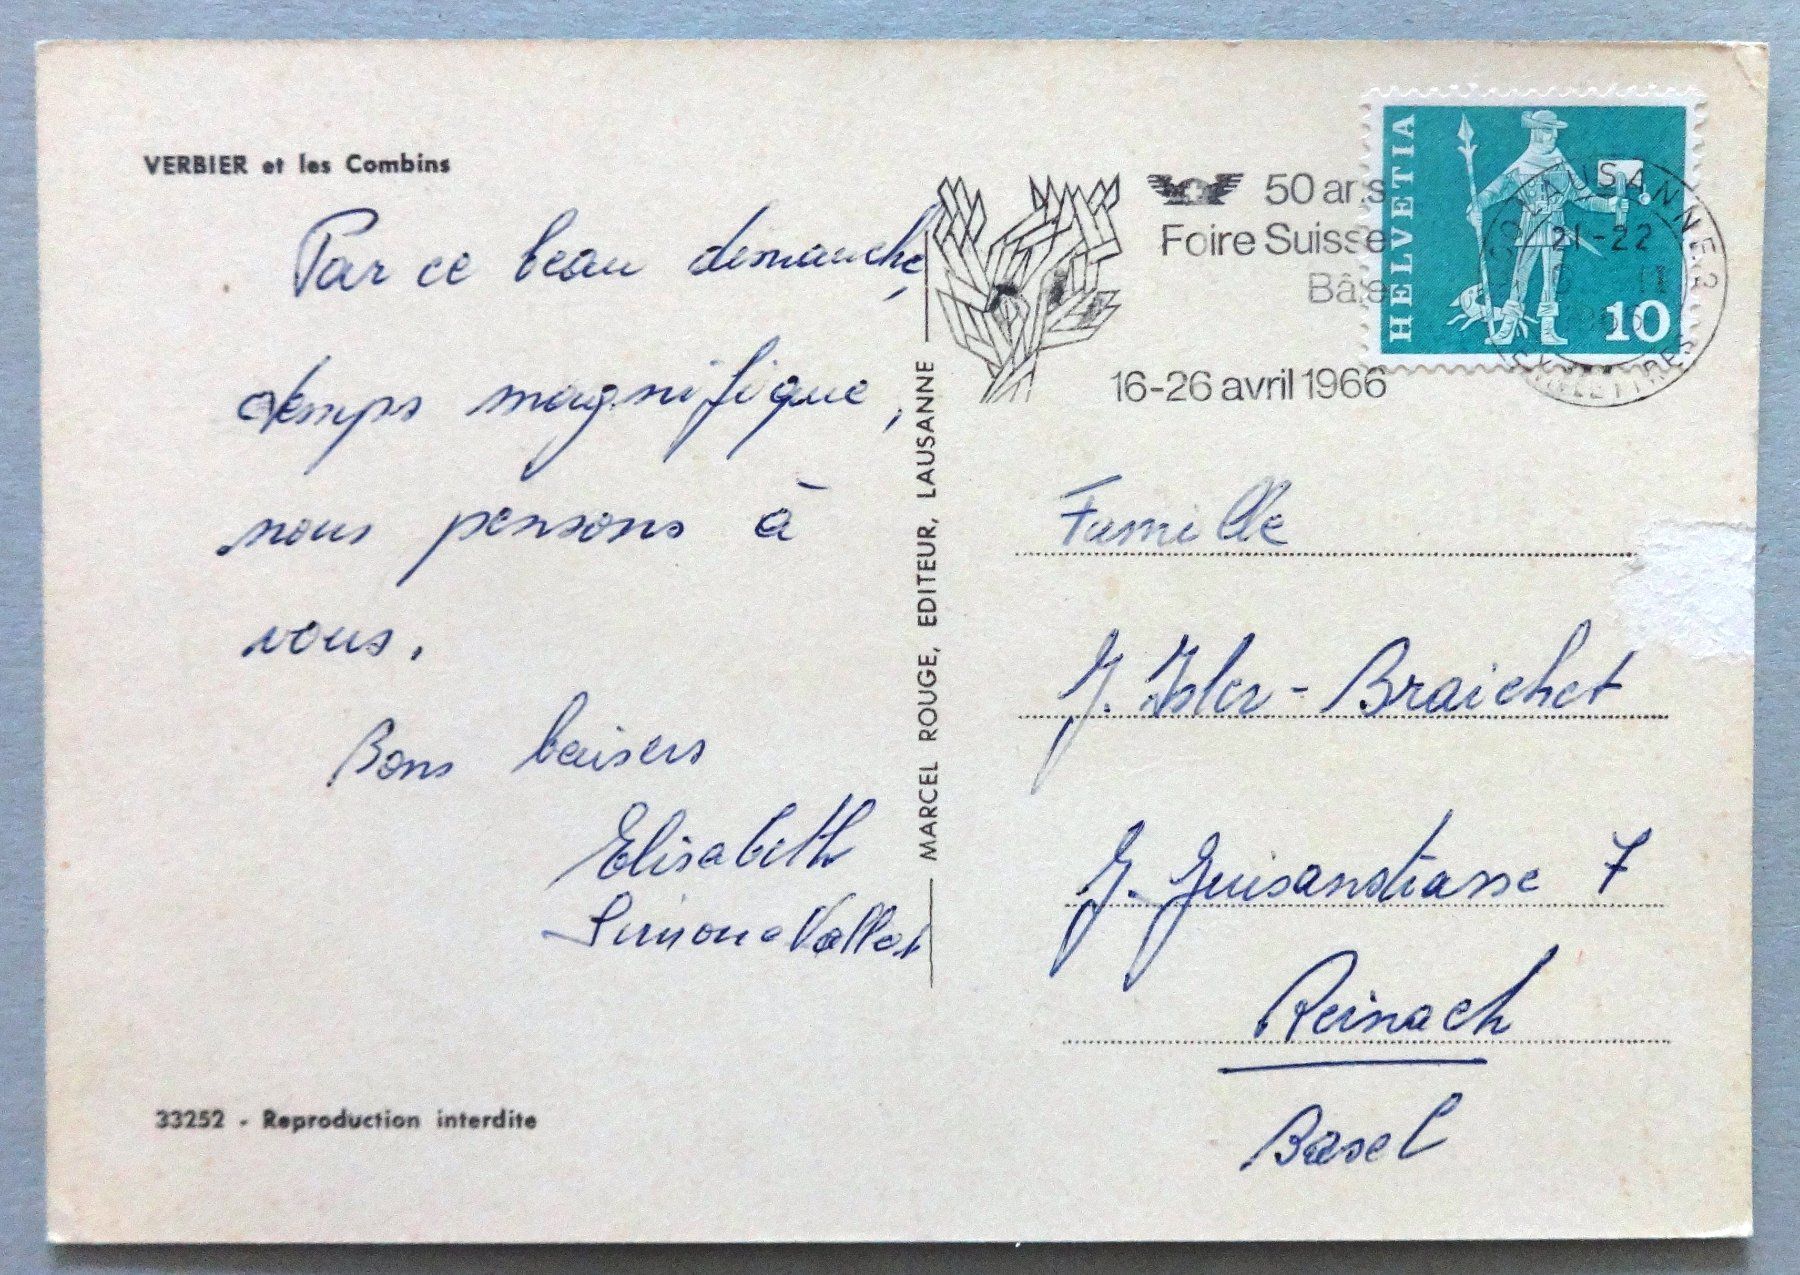 VERBIER et les Combins
Par ce beau dimanche,
temps magnifique,
nous pensons à
vous.
Bons baisers
Elisabeth
Simone Vallet
33252 - Reproduction interdite
MARCEL ROUGE, EDITEUR, LAUSANNE
50 ans
Foire Suisse
Bâle
16-26 avril 1966
HELVETIA
10
LAUSANNE 2
21-22
EXP. LETTRES
Famille
J. Isler-Braichet
G. Guisanstrasse 7
Reinach
Basel